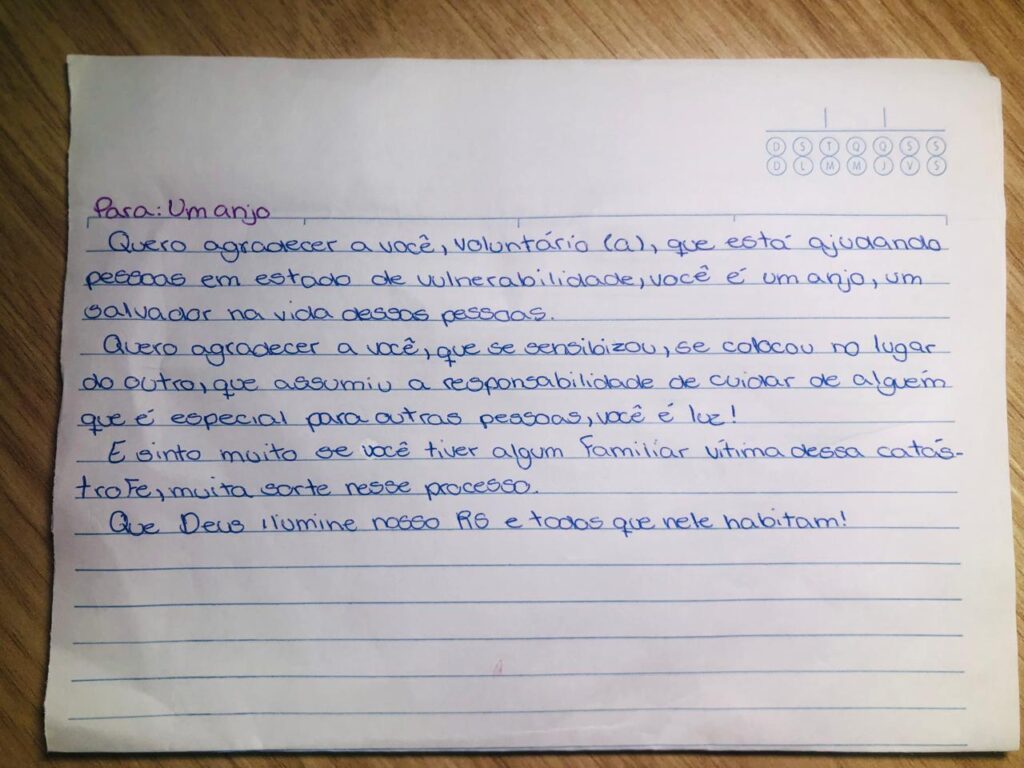 D S T Q Q S S
D L M M J V S
Para: Um anjo
Quero agradecer a você, voluntário (a), que está ajudando
pessoas em estado de vulnerabilidade, você é um anjo, um
salvador na vida dessas pessoas.
Quero agradecer a você, que se sensibizou, se colocou no lugar
do outro, que assumiu a responsabilidade de cuidar de alguém
que é especial para outras pessoas, você é luz!
E sinto muito se você tiver algum familiar vítima dessa catás-
trofe, muita sorte nesse processo.
Que Deus ilumine nosso RS e todos que nele habitam!